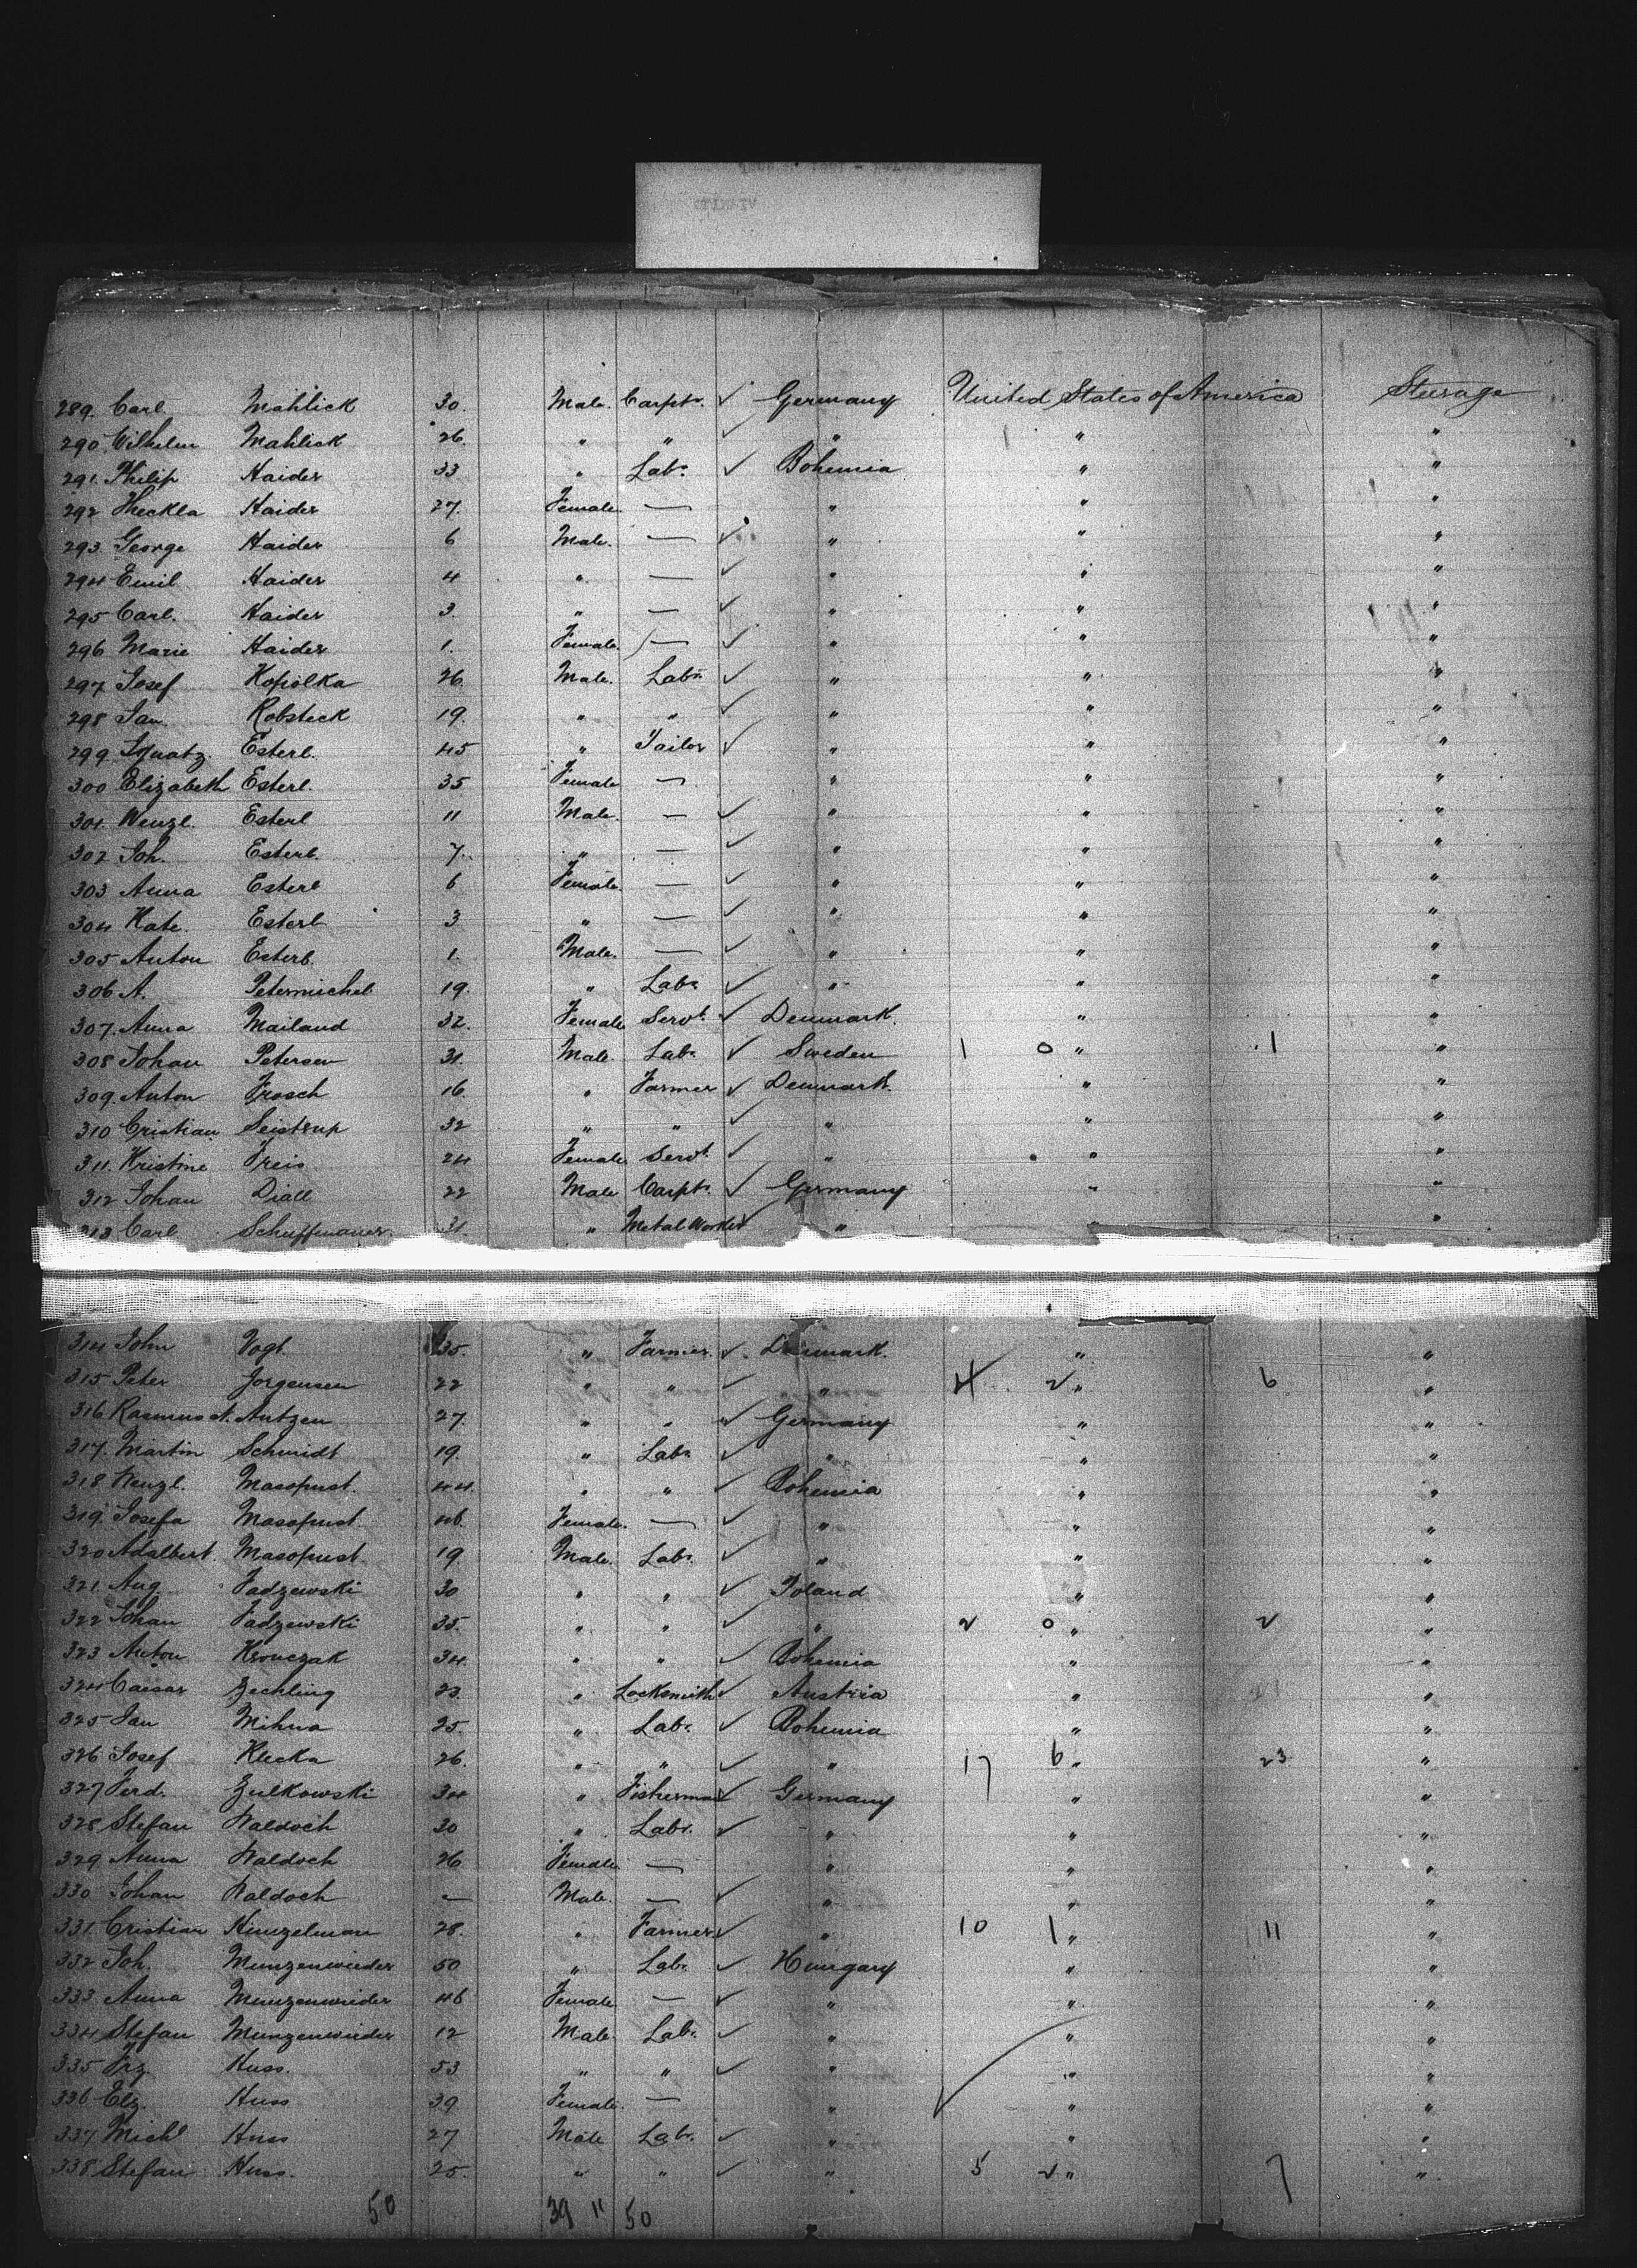 289. Carl Mahlick 30. Male. Carptr. ✓ Germany United States of America Steerage
290 Wilhelm Mahlick 26. " " ✓ " " "
291. Philip Haider 33 " Labr. ✓ Bohemia " "
292 Theckla Haider 27. Female. — " " "
293 George Haider 6 Male. — ✓ " " "
294 Emil Haider 4 " — ✓ " " "
295 Carl. Haider 3. " — ✓ " " "
296 Marie Haider 1. Female. — ✓ " " "
297 Josef Kopolka 26. Male. Labr. ✓ " " "
298 Jan. Robsteck 19. " " ✓ " " "
299 Ignatz. Esterl. 45 " Tailor ✓ " " "
300 Elizabeth Esterl. 35 Female — " " "
301. Wenzl. Esterl 11 Male. — ✓ " " "
302 Joh. Esterl. 7. " — ✓ " " "
303 Anna Esterl 6 Female — ✓ " " "
304 Kate. Esterl 3 " — ✓ " " "
305 Anton Esterl. 1. Male. — ✓ " " "
306 A. Petermichel 19. " Labr. ✓ " " "
307. Anna Mailand 32. Female Servt. ✓ Denmark. " "
308 Johan Petersen 31. Male Labr. ✓ Sweden 1 0 " 1 "
309. Anton Frosch 16. " Farmer ✓ Denmark. " "
310 Cristian Seistrup 32 " " ✓ " " "
311. Kristine Freis 24 Female Servt. ✓ " " "
312 Johan Diall 22 Male Carptr. ✓ Germany " "
313 Carl Schuffmauer. 31. " Metal Worker ✓ " "
314 John Vogt. 35. " Farmer. ✓ Denmark. " "
315 Peter Jorgensen 22 " " ✓ " 4 2 " 6 "
316 Rasmus A. Antzen 27. " " ✓ Germany " "
317. Martin Schmidt 19. " Labr. ✓ " " "
318 Wenzl. Masopust. 44. " " ✓ Bohemia " "
319. Josefa Masopust. 46. Female. — ✓ " " "
320 Adalbert. Masopust. 19 Male. Labr. ✓ " " "
321. Aug. Fadzewski 30 " " ✓ Poland " "
322 Johan Fadzewski 35. " " ✓ " 2 0 " 2 "
323 Anton Kronczak 34. " " ✓ Bohemia " "
324 Caesar Zechling 23. " Locksmith ✓ Austria " "
325 Jan Mihna 25. " Labr. ✓ Bohemia " "
326 Josef Klecka 26. " " ✓ " 17 6 " 23 "
327 Ferd. Zulkowski 34 " Fisherman ✓ Germany " "
328 Stefan Waldoch 30 " Labr. ✓ " " "
329 Anna Waldoch 26 Female — " " "
330 Johan Waldoch — Male. — ✓ " " "
331. Cristian Kunzelman 28. " Farmer ✓ " 10 1 " 11 "
332 Joh. Munzenwieder 50 " Labr. ✓ Hungary " "
333 Anna Munzenwieder 46 Female — ✓ " " "
334 Stefan Munzenwieder 12 Male. Labr. ✓ " " "
335 Frz. Huss. 53 " " ✓ " " "
336 Elz. Huss 39 Female. — " " "
337 Michl Huss 27 Male Labr. ✓ " " "
338 Stefan Huss. 25. " " ✓ " 5 2 " 7 "
50 39 11 50